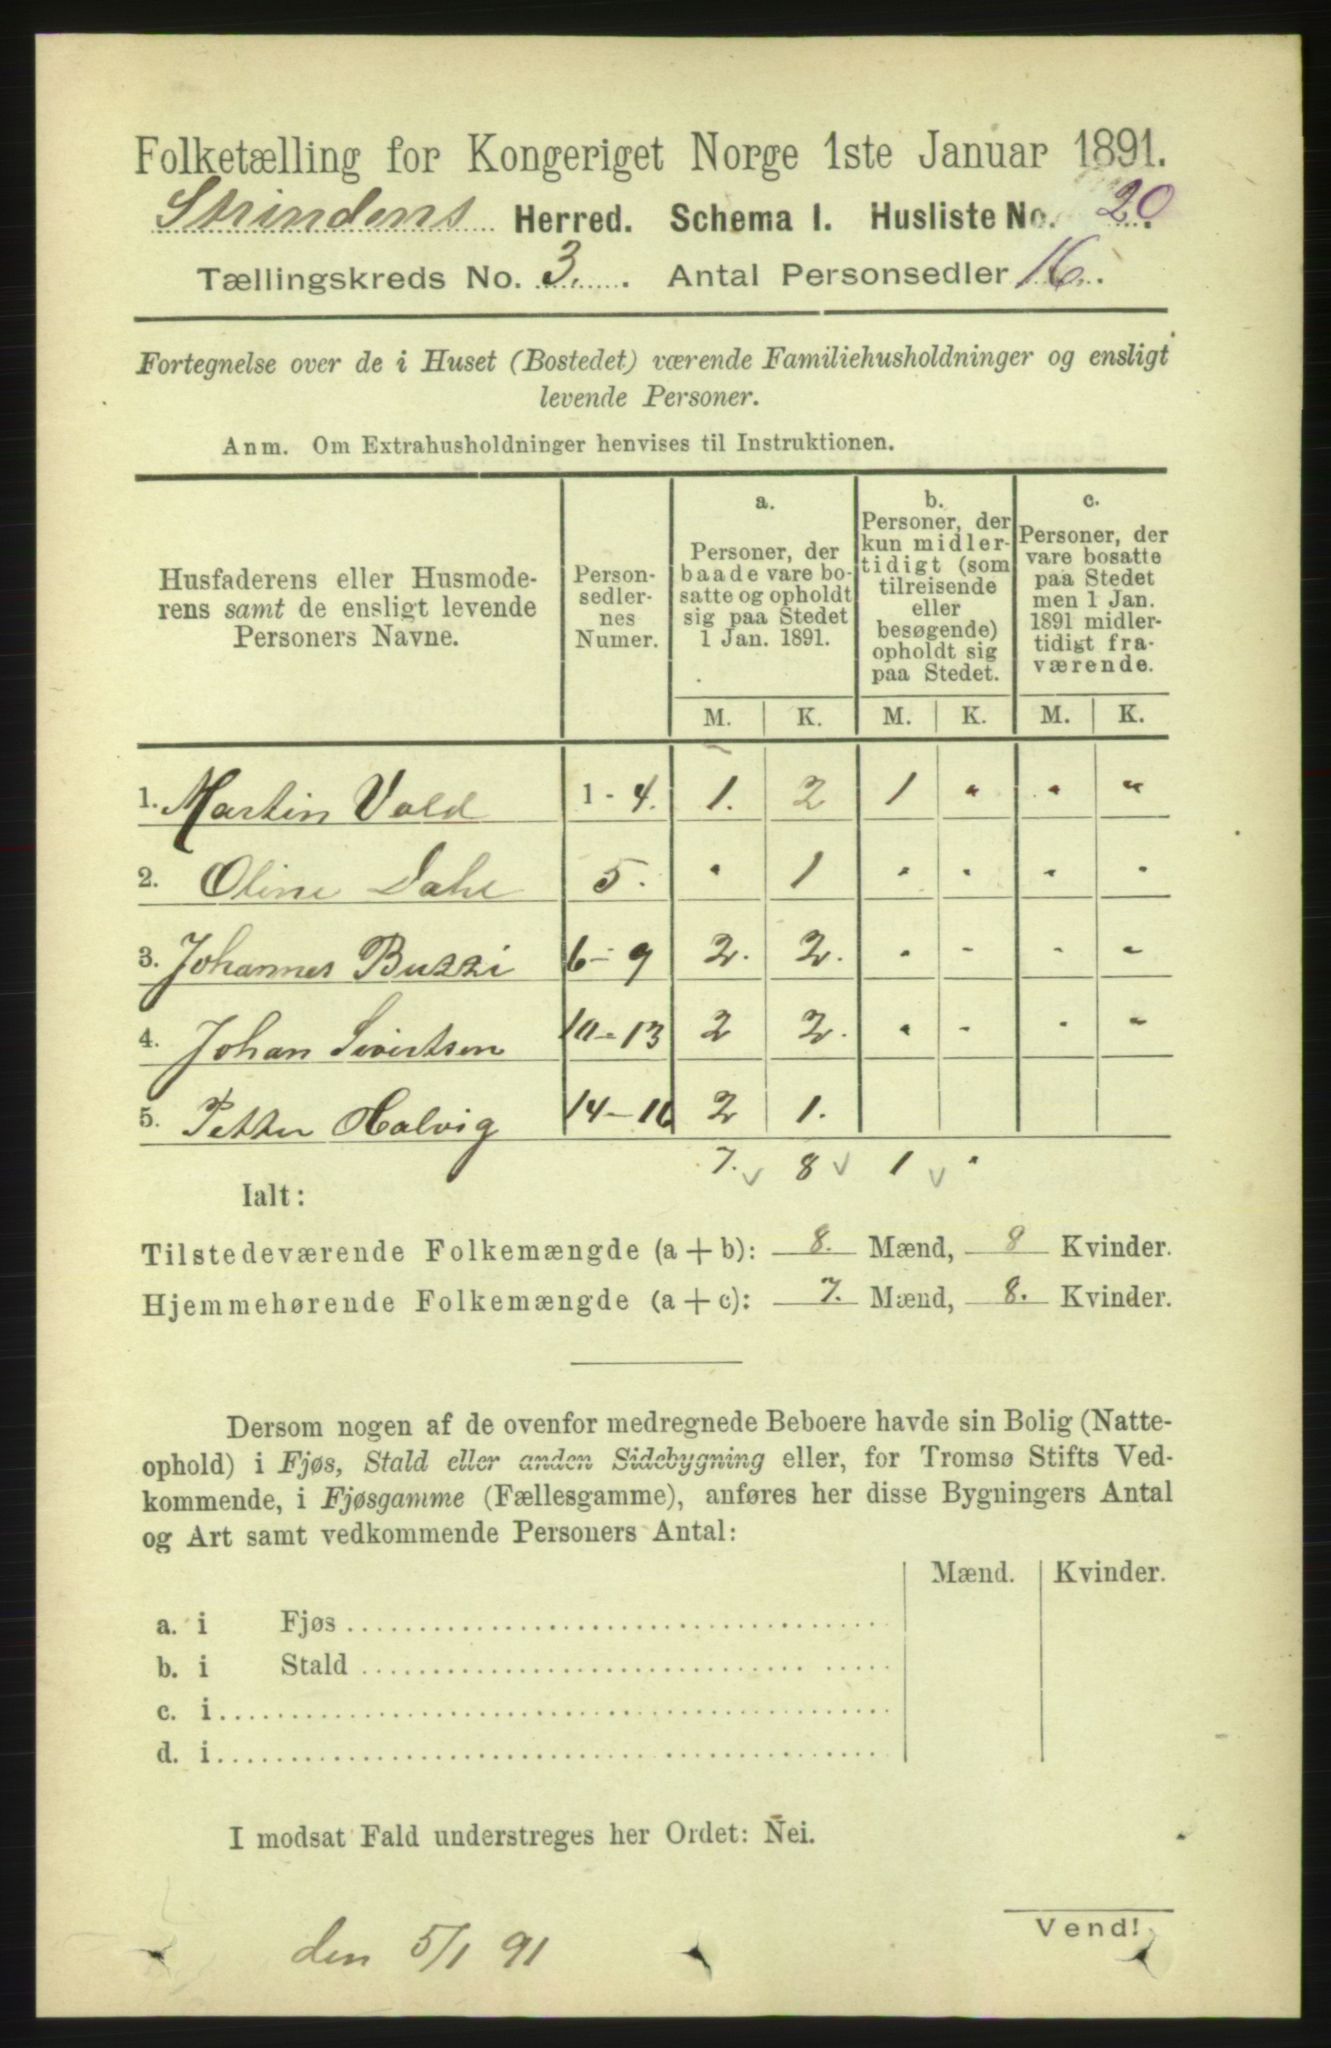 Folketælling for Kongeriget Norge 1ste Januar 1891.
Strindens Herred. Schema I. Husliste No. 20.
Tællingskreds No. 3. Antal Personsedler 16.
Fortegnelse over de i Huset (Bostedet) værende Familiehusholdninger og ensligt
levende Personer.
Anm. Om Extrahusholdninger henvises til Instruktionen.
Husfaderens eller Husmode-
rens samt de ensligt levende
Personers Navne.
Person-
sedler-
nes
Numer.
a.
Personer, der
baade vare bo-
satte og opholdt
sig paa Stedet
1 Jan. 1891.
b.
Personer, der
kun midler-
tidigt (som
tilreisende
eller
besøgende)
opholdt sig
paa Stedet.
c.
Personer, der
vare bosatte
paa Stedet
men 1 Jan.
1891 midler-
tidigt fra-
værende.
M. K. M. K. M. K.
1. Martin Vold 1-4. 1. 2 1 " " "
2. Oline Dahl 5. . 1 . . . .
3. Johannes Buzzi 6-9 2. 2. . - . -
4. Johan Sivertsen 10-13 2 2. . - . -
5. Petter Halvig 14-16 2 1.
7. 8 1 .
Ialt:
Tilstedeværende Folkemængde (a + b): 8. Mænd, 8 Kvinder.
Hjemmehørende Folkemængde (a + c): 7. Mænd, 8. Kvinder.
Dersom nogen af de ovenfor medregnede Beboere havde sin Bolig (Natte-
ophold) i Fjøs, Stald eller anden Sidebygning eller, for Tromsø Stifts Ved-
kommende, i Fjøsgamme (Fællesgamme), anføres her disse Bygningers Antal
og Art samt vedkommende Personers Antal:
Mænd. Kvinder.
a. i Fjøs
b. i Stald
c. i
d. i
I modsat Fald understreges her Ordet: Nei.
Vend!
den 5/1 91